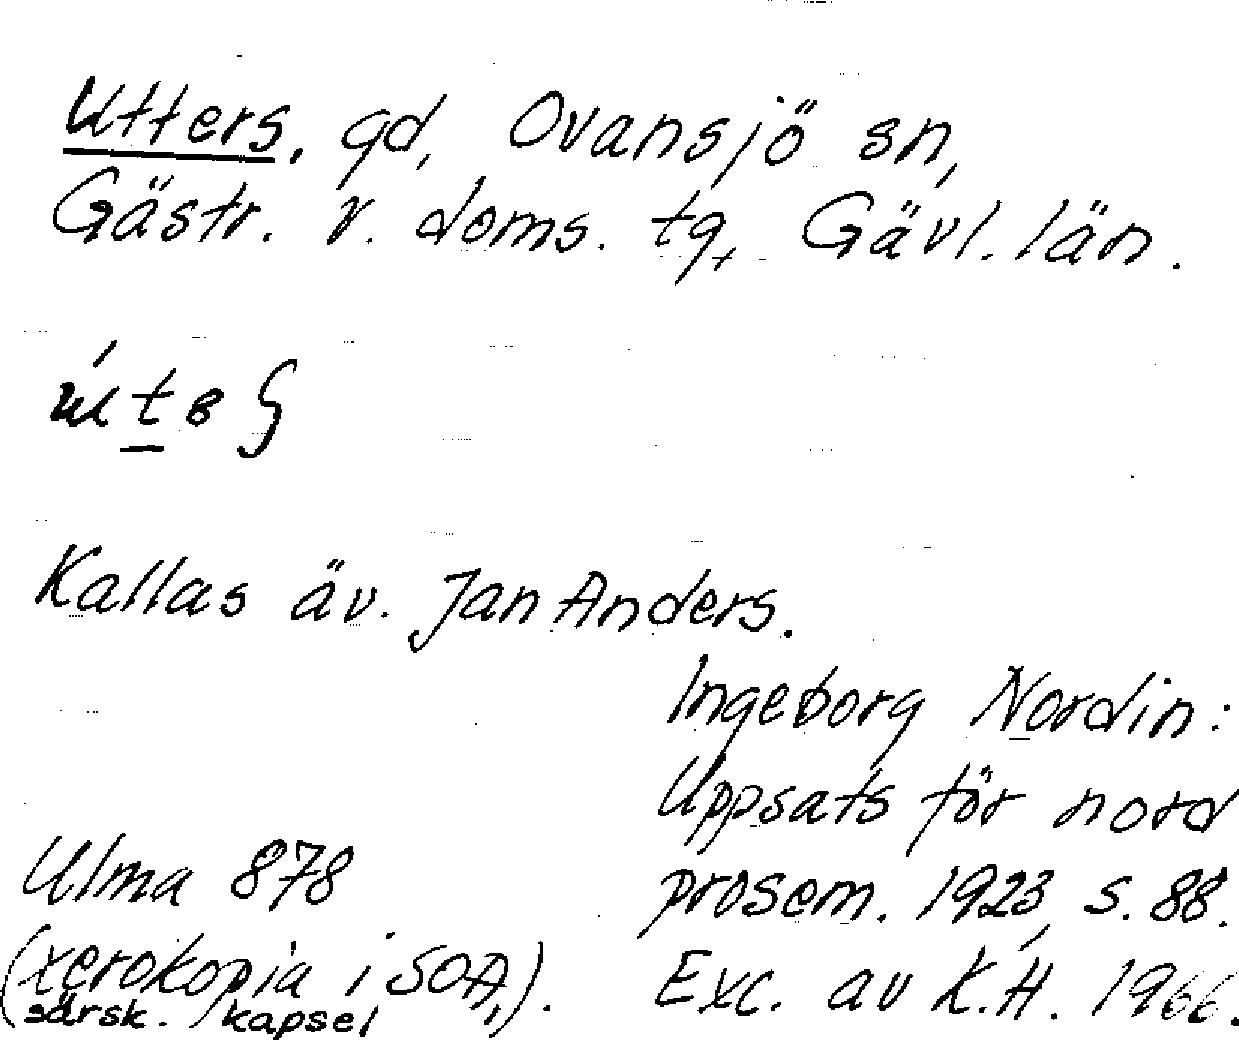 Utters, gd, Ovansjö sn,
Gästr. v. doms. tg, Gävl. län.
Kallas äv. Jan Anders.
Ingeborg Nordin:
Uppsats för nord
prosem. 1923, s. 88.
Ulma 878
(xerokopia i SOA,).
särsk. kapsel
Exc. av K.H. 1966.